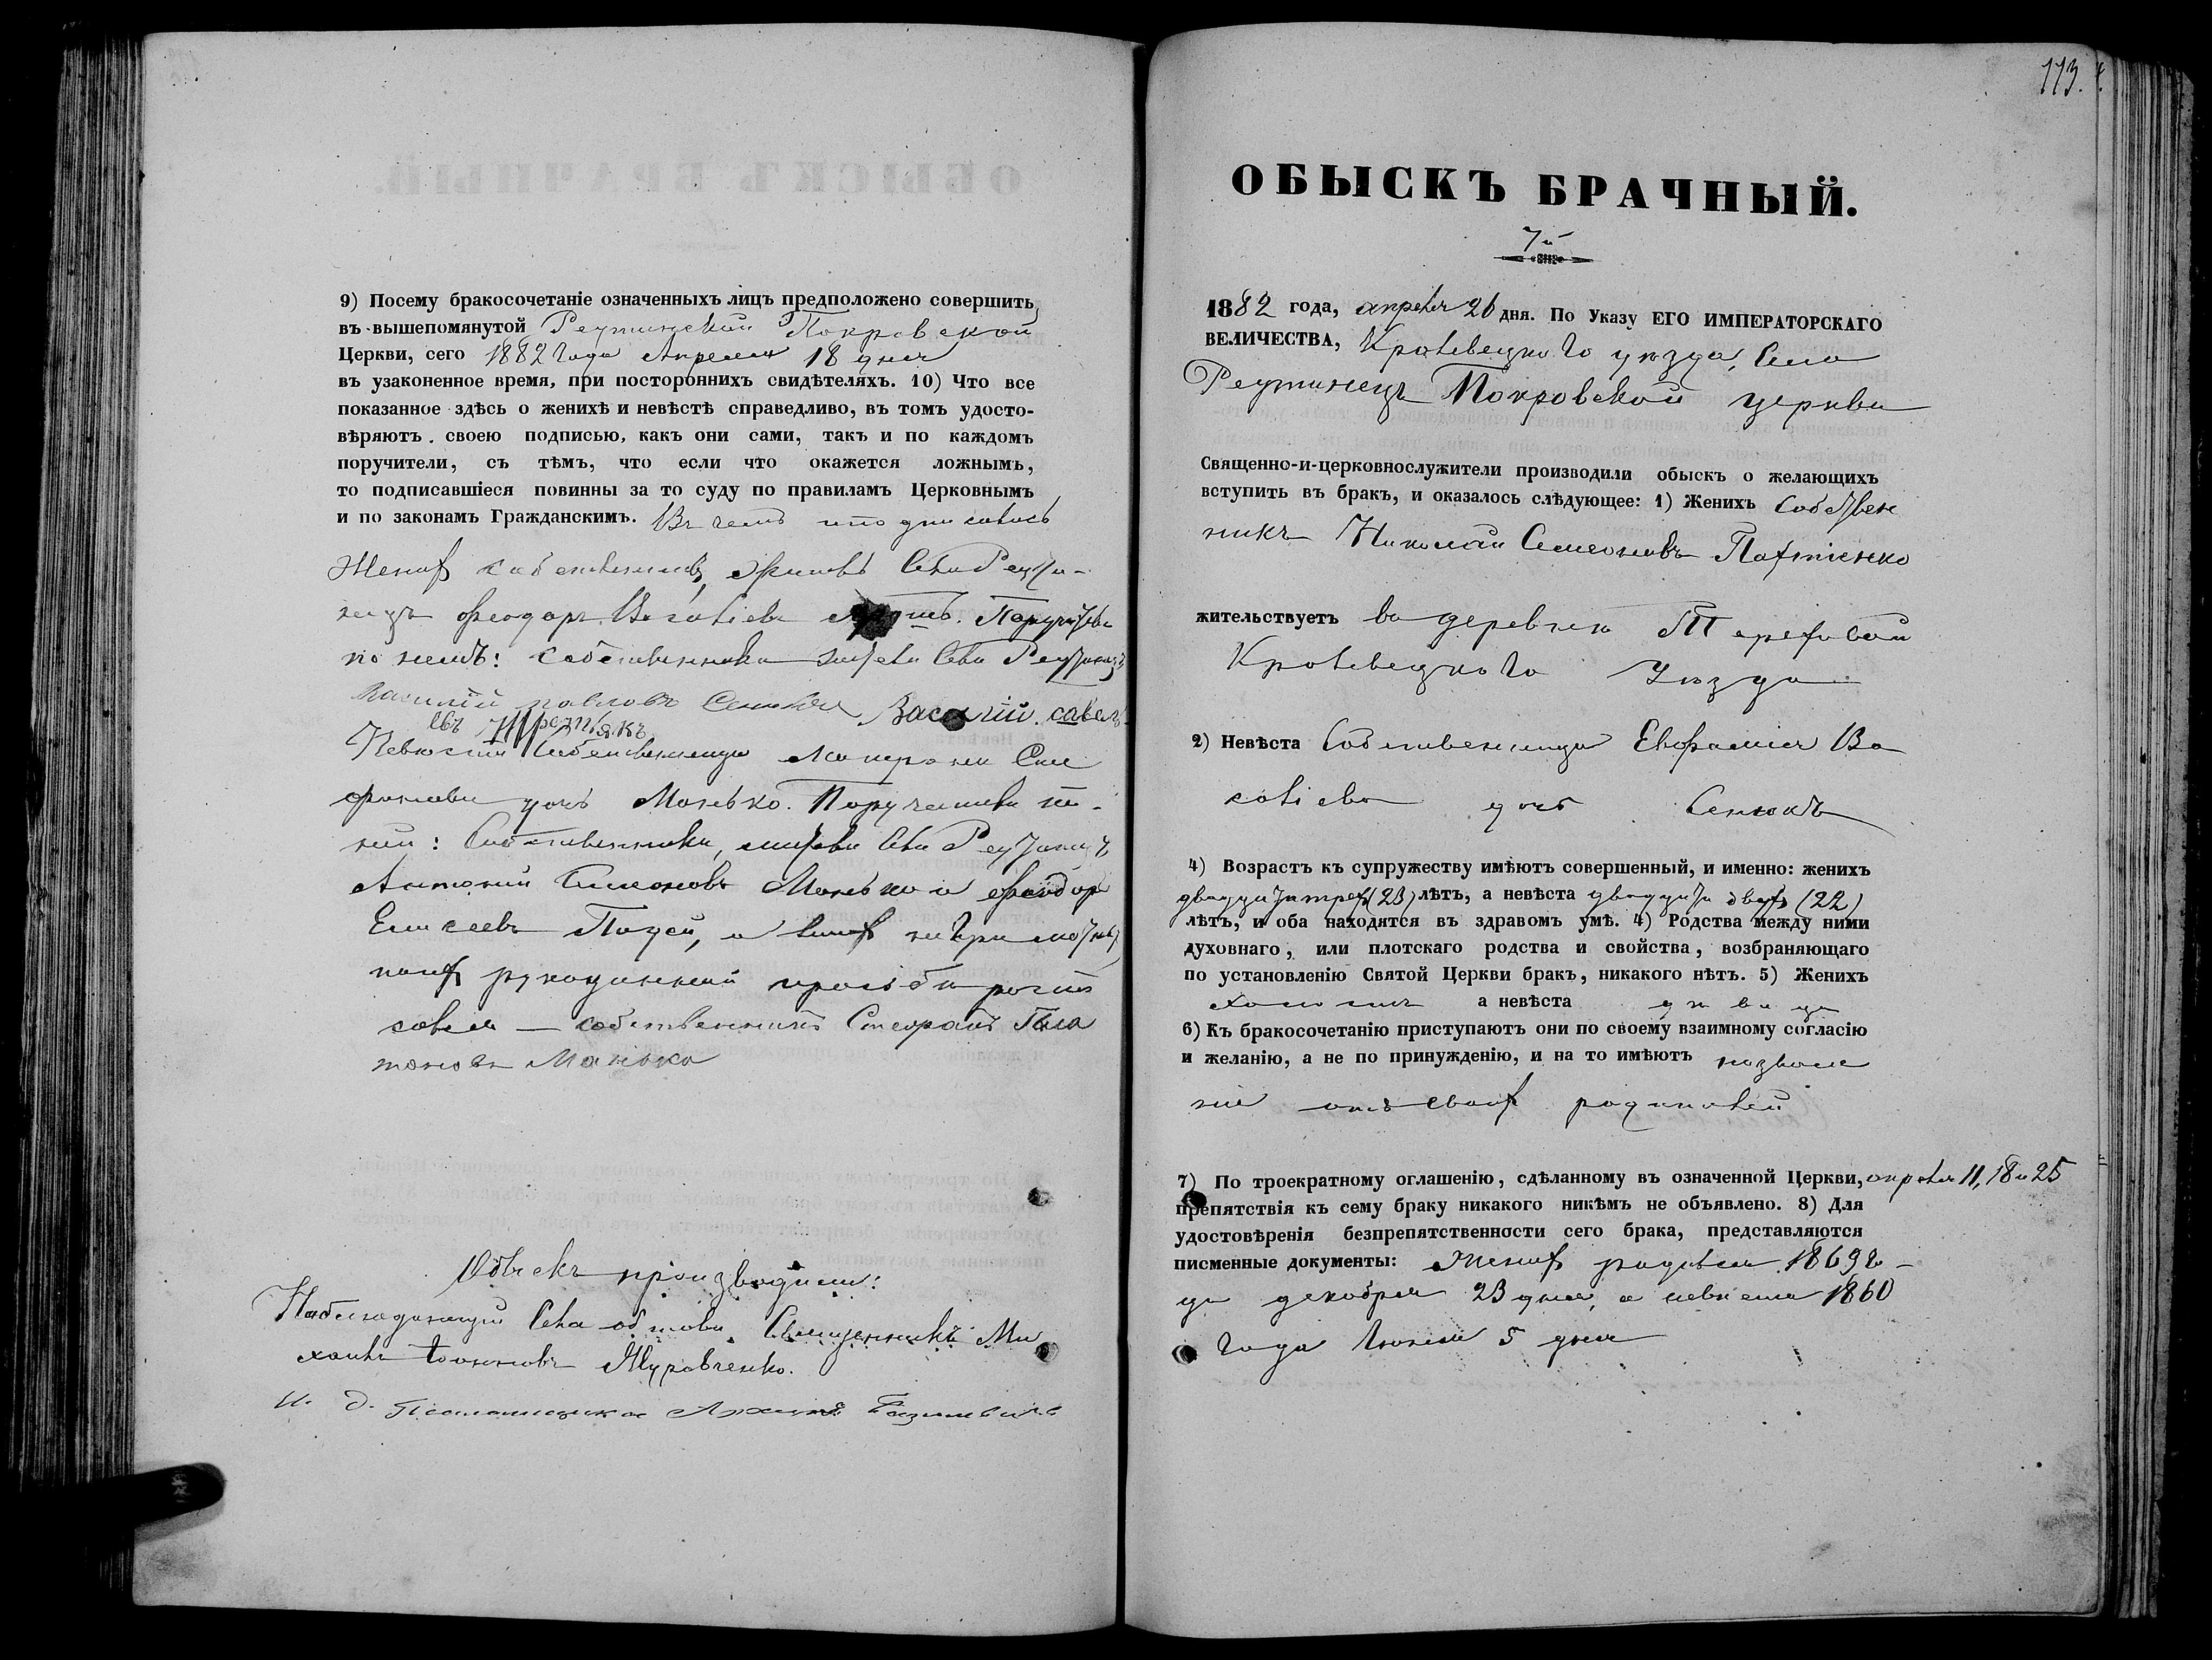 9) Посему бракосочетаніе означенныхъ лицъ предположено совершить
въ вышепомянутой Реутинской Покровской
Церкви, сего 1882 года Апреля 18 дня
въ узаконенное время, при постороннихъ свидѣтеляхъ. 10) Что все
показанное здѣсь о женихѣ и невѣстѣ справедливо, въ томъ удосто-
вѣряютъ своею подписью, какъ они сами, такъ и по каждомъ
поручители, съ тѣмъ, что если что окажется ложнымъ,
то подписавшіеся повинны за то суду по правиламъ Церковнымъ
и по законамъ Гражданскимъ. Въ чемъ и подписались
Женихъ собственникъ, села Реути-
нецъ Феодоръ Поручители
по немъ: собственники жители села Реутинецъ
Василій Павловъ Сенюкъ Василій савель
евъ
Невѣста собственница Матрона Спи
фонова дочь Монько. Поручители по
ней: Собственники, жители села Реутинецъ
Антоній Симоновъ Монько и Феодоръ
Елисеевъ Поцей, а вмѣсто неграмотныхъ
ихъ рукоданной просьбѣ роспи
сался — собственникъ Стефанъ Пла
тоновъ Манько
Обыскъ производили:
Наблюдающій села обтова Священникъ Ми
хаилъ Іоанновъ Муравченко.
И. д. Псаломщика
113.
ОБЫСКЪ БРАЧНЫЙ.
7й
1882 года, апреля 26 дня. По Указу ЕГО ИМПЕРАТОРСКАГО
ВЕЛИЧЕСТВА, Кролевецкаго уѣзда, Села
Реутинецъ Покровской церкви
Священно-и-церковнослужители производили обыскъ о желающихъ
вступить въ бракъ, и оказалось слѣдующее: 1) Женихъ Собствен
никъ Николай Симеоновъ Пахтіенко
жительствуетъ въ деревнѣ Тереховой
Кролевецкаго Уѣзда
2) Невѣста Собственница Евфимія Ва
силіева дочь Сенюкъ
4) Возрастъ къ супружеству имѣютъ совершенный, и именно: женихъ
двадцатитрехъ (23) лѣтъ, а невѣста двадцати двухъ (22)
лѣтъ, и оба находятся въ здравомъ умѣ. 4) Родства между ними
духовнаго, или плотскаго родства и свойства, возбраняющаго
по установленію Святой Церкви бракъ, никакого нѣтъ. 5) Женихъ
холостъ а невѣста дѣвица
6) Къ бракосочетанію приступаютъ они по своему взаимному согласію
и желанію, а не по принужденію, и на то имѣютъ позволе
ніе отъ своихъ родителей
7) По троекратному оглашенію, сдѣланному въ означенной Церкви, апреля 11, 18 и 25
препятствія къ сему браку никакого никѣмъ не объявлено. 8) Для
удостовѣренія безпрепятственности сего брака, представляются
писменные документы: Женихъ родился
да декабря 23 дня, а невѣста 1860
года Іюня 5 дня